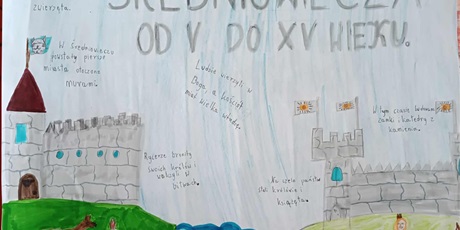 zwierzęta.
ŚREDNIOWIECZA
OD V DO XV WIEKU.
W średniowieczu
powstały pierwsze
miasta otoczone
murami.
Ludzie wierzyli w
Boga, a kościół
miał wielką władzę.
W tym czasie budowano
zamki i katedry z
kamienia.
Rycerze bronili
swoich królów i
walczyli w
bitwach.
Na czele państw
stali królowie i
książęta.